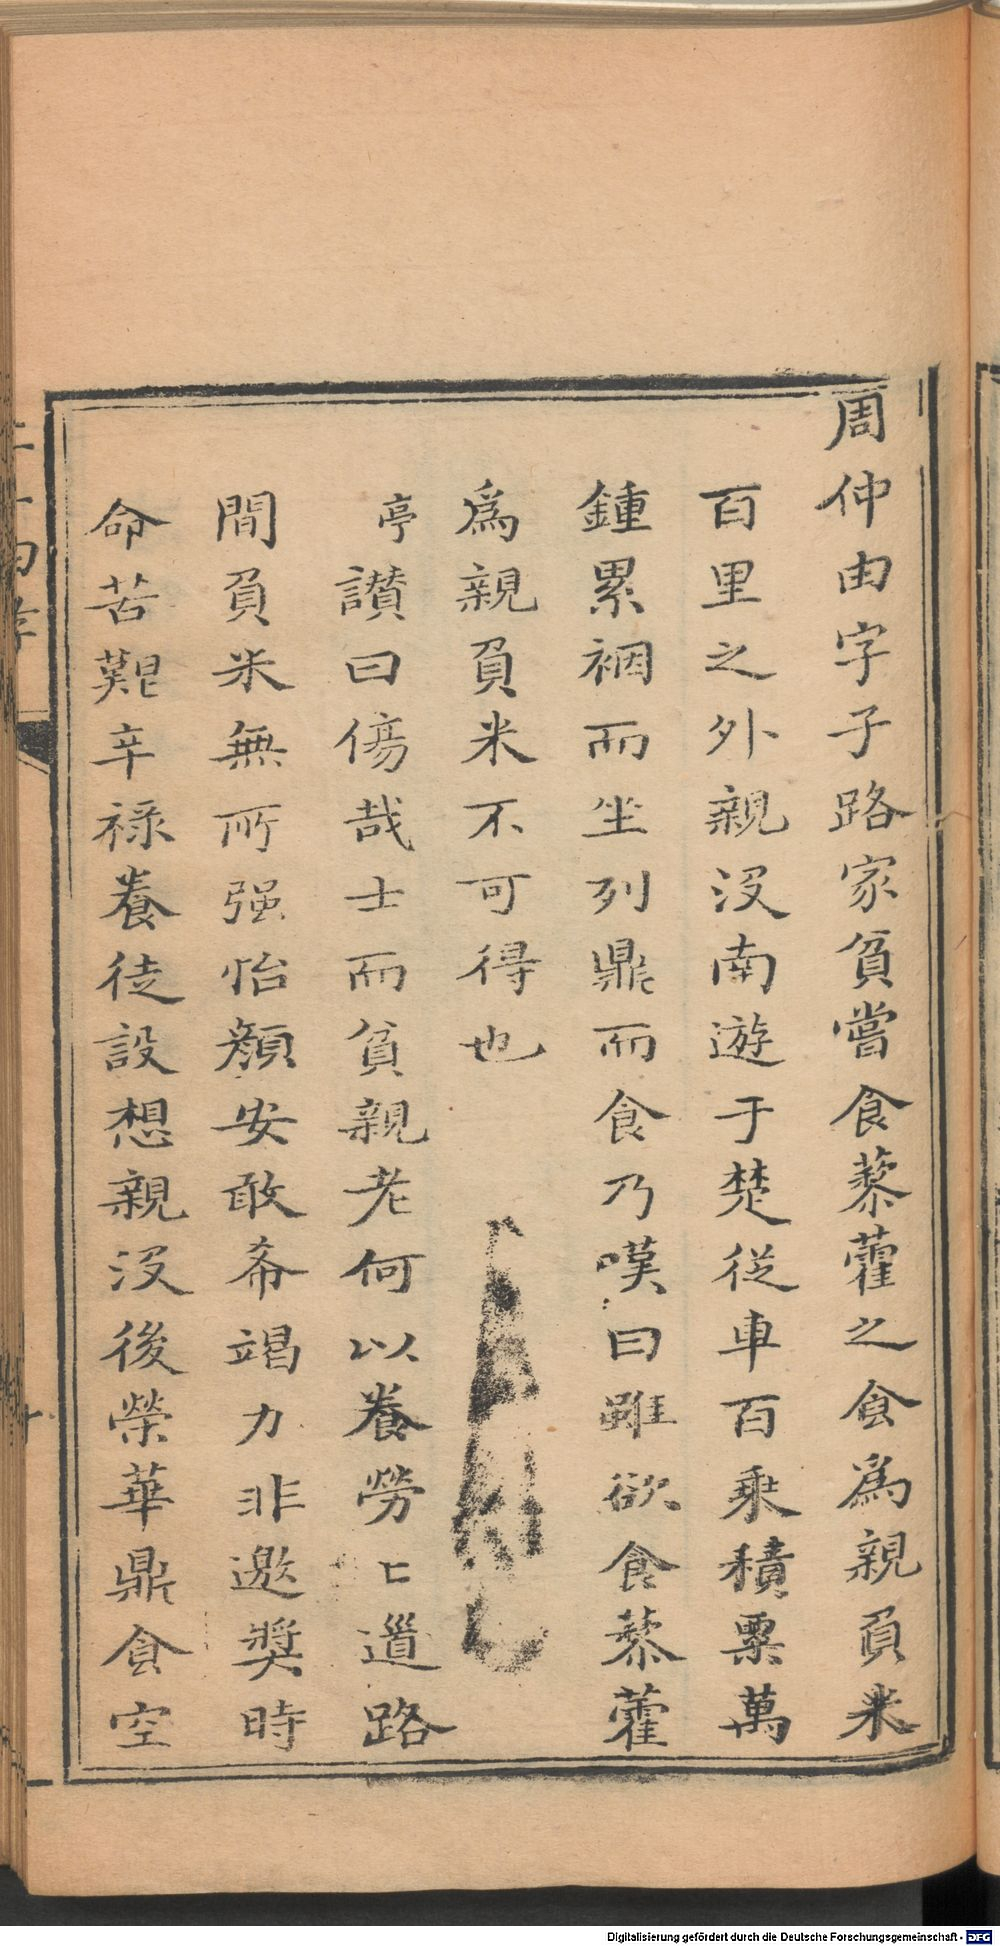 周仲由字子路家貧嘗食藜藿之食爲親負米
百里之外親没南遊于楚從車百乗積粟萬
鍾累裀而坐列鼎而食乃嘆曰雖欲食藜藿
爲親負米不可得也
亭讃曰傷哉士而貧親老何以養勞〻道路
間負米無所强怡顔安敢希竭力非邀奬時
命苦艱辛禄養徒設想親没後榮華鼎食空
Digitalisierung gefördert durch die Deutsche Forschungsgemeinschaft - DFG